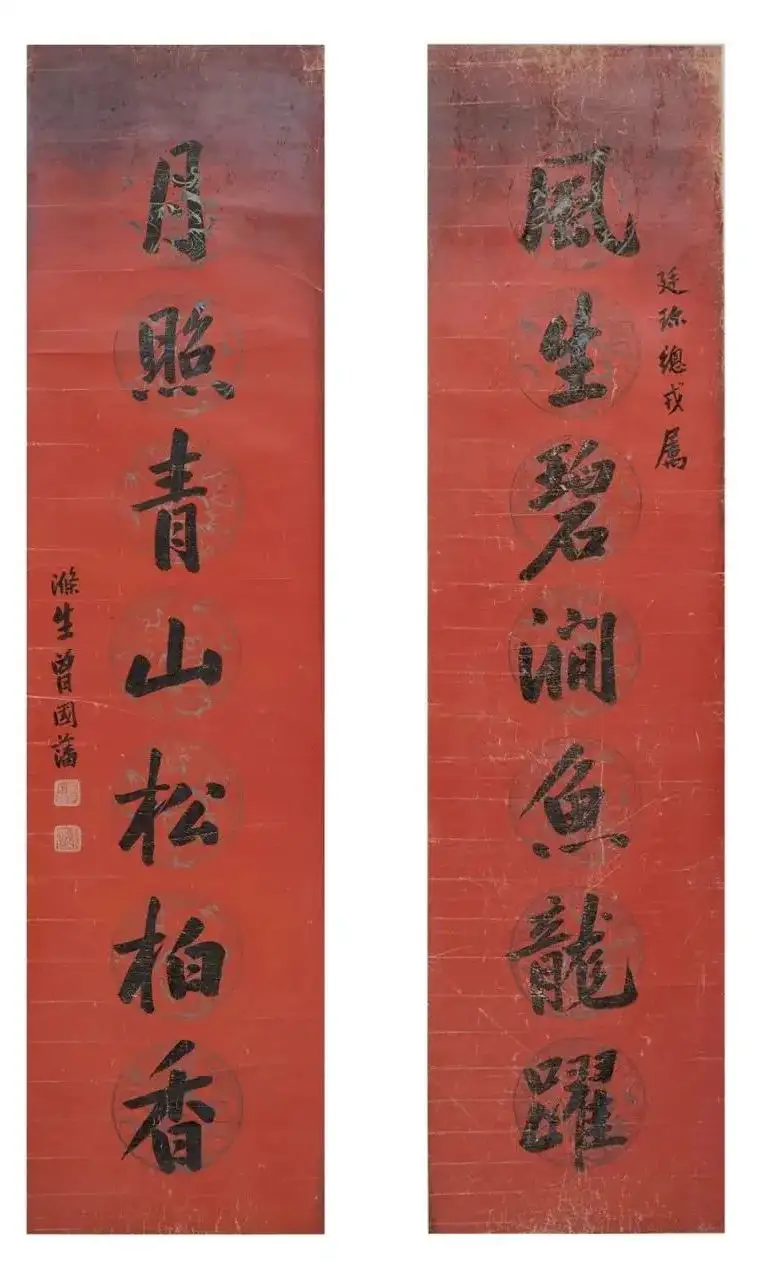 廷珎總戎屬
風生碧澗魚龍躍
月照青山松柏香
滌生曾國藩